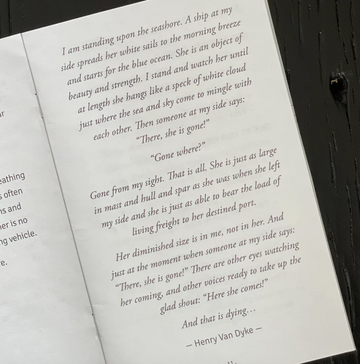 I am standing upon the seashore. A ship at my
side spreads her white sails to the morning breeze
and starts for the blue ocean. She is an object of
beauty and strength. I stand and watch her until
at length she hangs like a speck of white cloud
just where the sea and sky come to mingle with
each other. Then someone at my side says:
"There, she is gone!"
"Gone where?"
Gone from my sight. That is all. She is just as large
in mast and hull and spar as she was when she left
my side and she is just as able to bear the load of
living freight to her destined port.
Her diminished size is in me, not in her. And
just at the moment when someone at my side says:
"There, she is gone!" There are other eyes watching
her coming, and other voices ready to take up the
glad shout: "Here she comes!"
And that is dying...
— Henry Van Dyke —
eathing
s often
ns and
er is no
ng vehicle.
e.